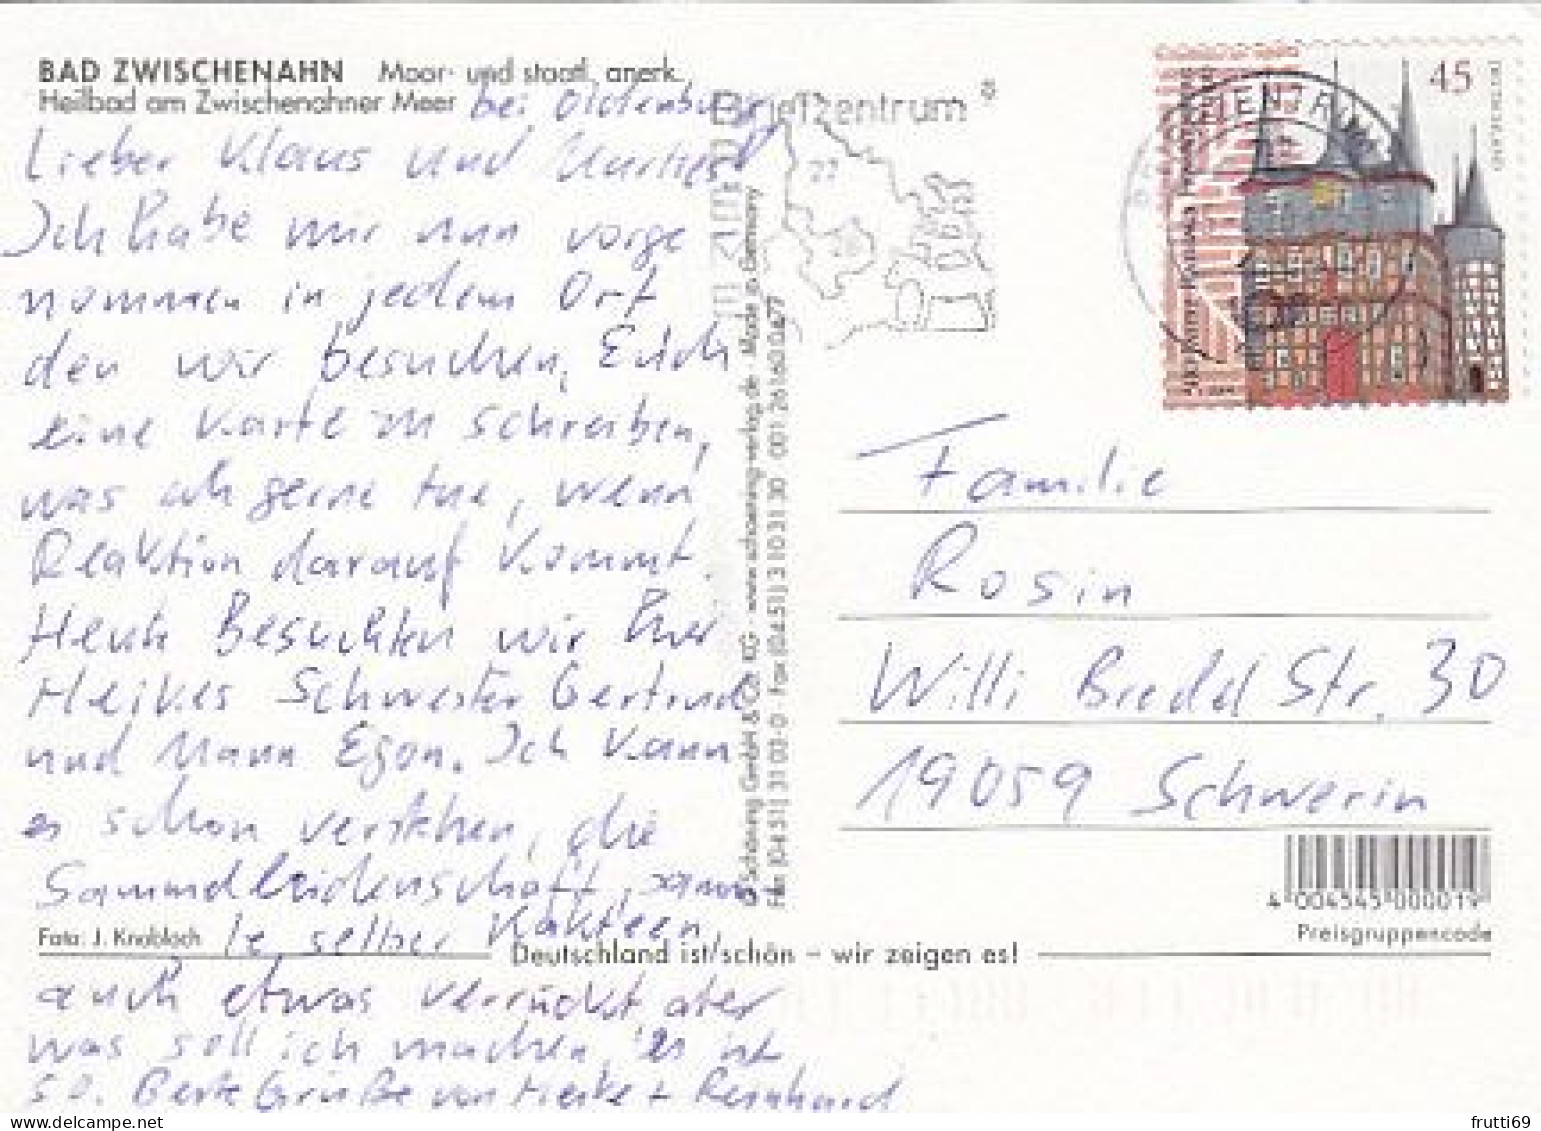 BAD ZWISCHENAHN Moor- und staatl. anerk.
Heilbad am Zwischenahner Meer
bei Oldenburg
Lieber Klaus und
Ich habe mir nun vorge
nommen in jedem Ort
den wir besuchen, Euch
eine Karte zu schreiben,
was ich gerne tue, wenn
Reaktion darauf kommt.
Heute Besuchten wir hier
Heikes Schwester Gertrud
und Mann Egon. Ich kann
es schon verstehen, die
Sammelleidenschaft, samm-
le selber Kakteen,
auch etwas verrückt aber
was soll ich machen, es ist
so. Beste Grüße von Heike + Reinhard
Foto: J. Knobloch
Deutschland ist schön – wir zeigen es!
© Schöning GmbH & Co. KG · www.schoening-verlag.de · Made in Germany
Fon (04 51) 3 10 3-0 · Fax (04 51) 3 10 31 30 001 26 160 0477
Briefzentrum
27
45
DEUTSCHLAND
Familie
Rosin
Willi Bredel Str. 30
19059 Schwerin
4 004545 000019
Preisgruppencode
frutti69